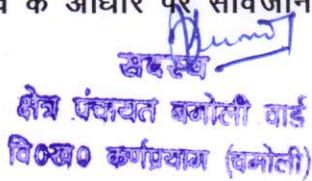 के आधार पर सार्वजनि
सदस्य
क्षेत्र पंचायत बमोली वार्ड
वि०ख० कर्णप्रयाग (चमोली)